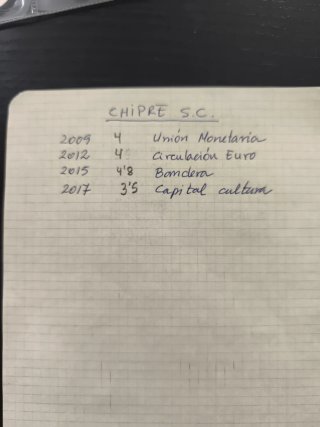 CHIPRE S.C.
2009 4 Unión Monetaria
2012 4 Circulación Euro
2015 4'8 Bandera
2017 3'5 Capital cultura